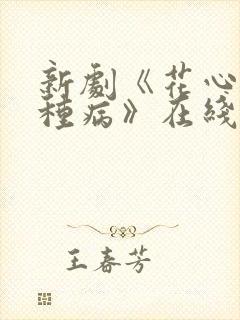 新劇《花心
種病》在綫
王春芳